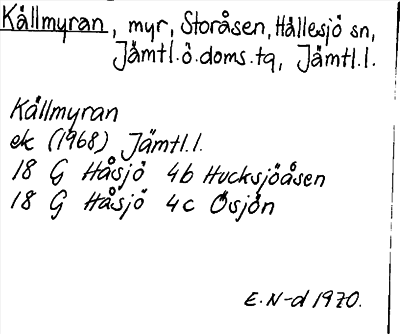 Källmyran, myr, Storåsen, Hällesjö sn,
Jämtl.ö.doms.tg, Jämtl.l.
Källmyran
ek (1968) Jämtl.l.
18 G Håsjö 4b Hucksjöåsen
18 G Håsjö 4c Ösjön
E.N-d 1970.